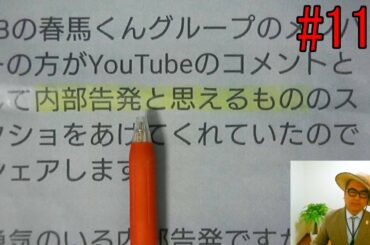 #11
Bの春馬くんグループのメンバ
ーの方がYouTubeのコメントと
して内部告発と思えるもののス
クショをあげてくれていたので
シェアします
勇気のいる内部告発ですが